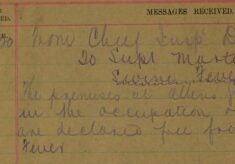 MESSAGES RECEIVED.
From Chief Insp D
To Supt Mart
Fever
The premises at Allens
in the occupation o
are declared free fro
Fever